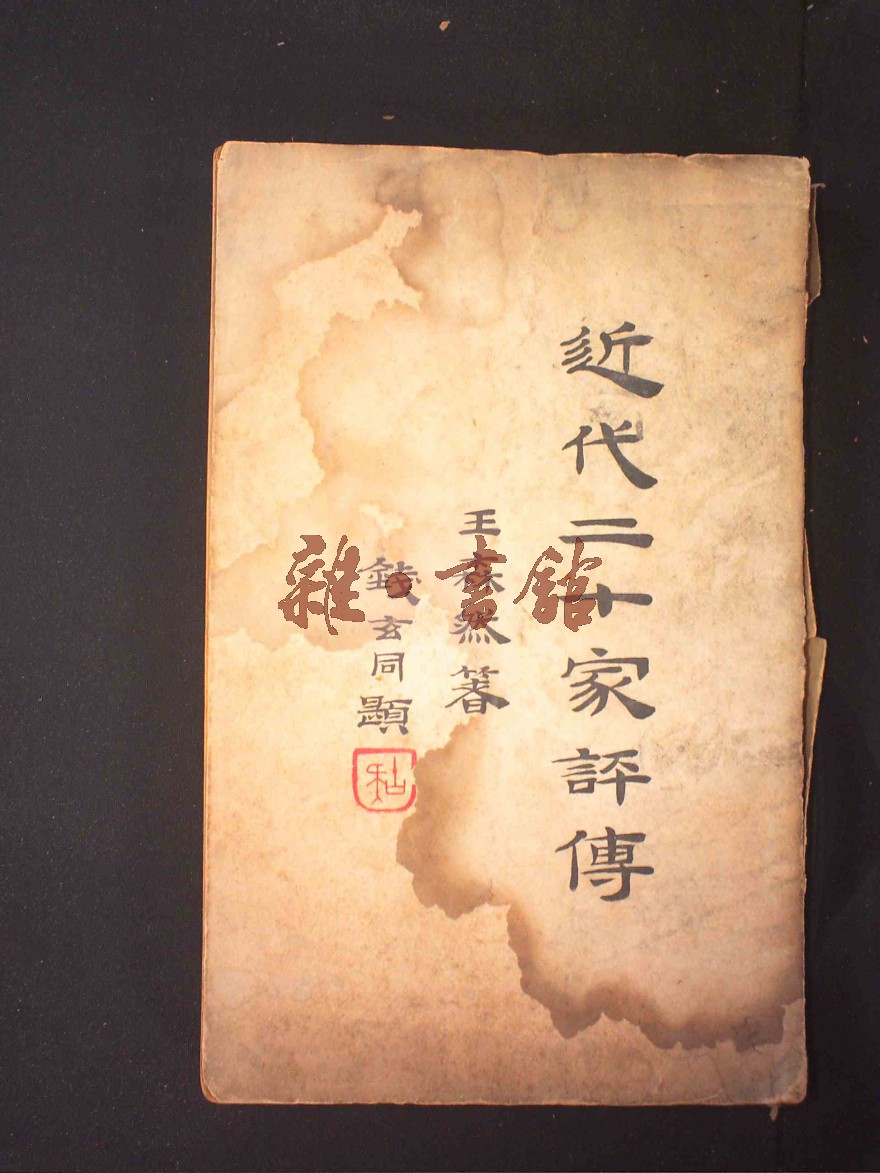 近代二十家評傳
王森然箸
錢玄同題
雜·書館